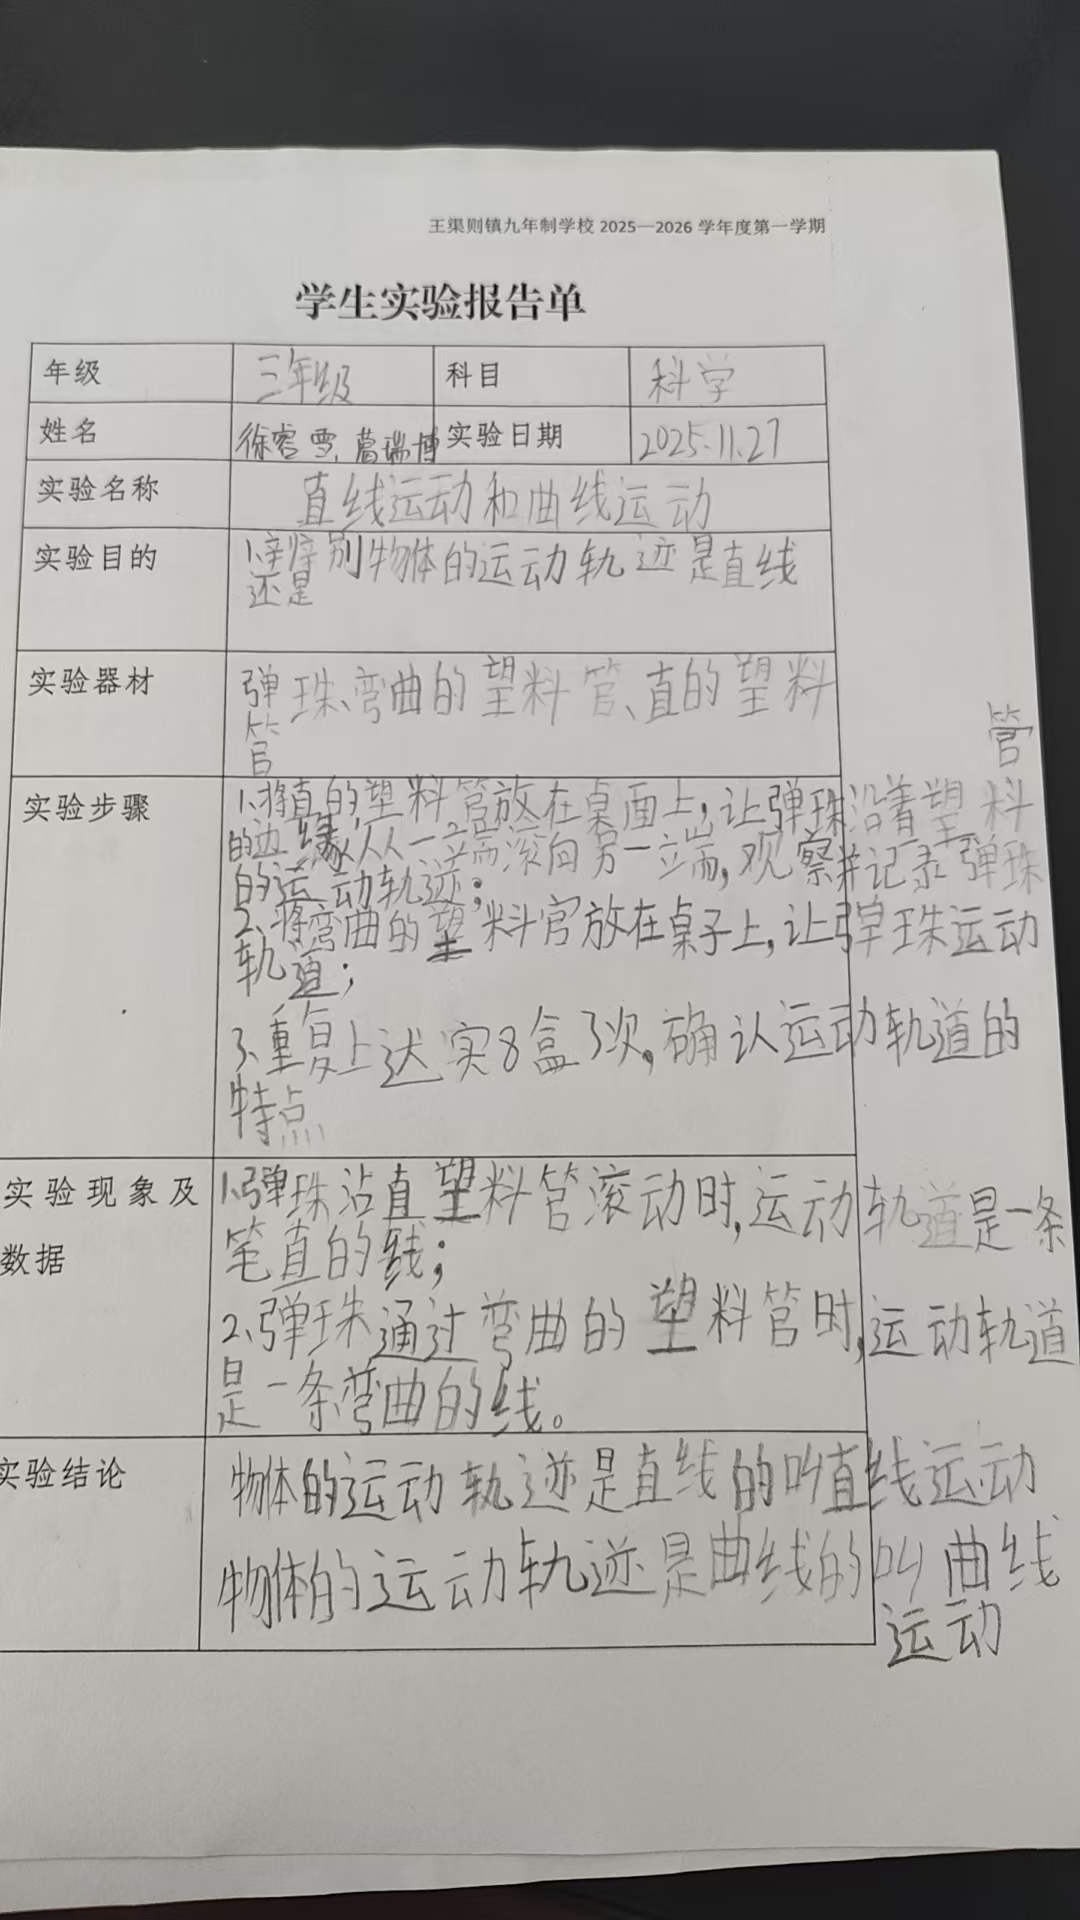 王渠则镇九年制学校 2025—2026 学年度第一学期
学生实验报告单
年级 三年级 科目 科学
姓名 徐睿雪、葛瑞博 实验日期 2025.11.27
实验名称 直线运动和曲线运动
实验目的 1.辨别物体的运动轨迹是直线
还是
实验器材 弹珠、弯曲的塑料管、直的塑料
管
管
实验步骤 1.将直的塑料管放在桌面上,让弹珠沿着塑料
的边缘从一端滚向另一端,观察并记录弹珠
的运动轨迹;
2.将弯曲的塑料官放在桌子上,让弹珠运动
轨道;
3.重复上达实8盒3次,确认运动轨道的
特点
实验现象及 1.弹珠沾直塑料管滚动时,运动轨道是一条
数据 笔直的线;
2.弹珠通过弯曲的塑料管时,运动轨道
是一条弯曲的线。
实验结论 物体的运动轨迹是直线的叫直线运动
物体的运动轨迹是曲线的叫曲线
运动